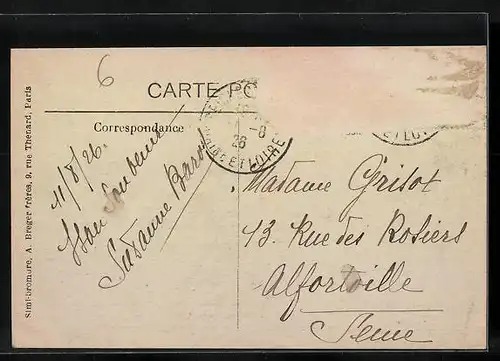 6
CARTE PO
Correspondance
11/8/26.
Bon Souvenir
Suzanne Baro
-8
26
ET LOIRE
ET LOIRE
Madame Grisot
13 Rue des Rosiers
Alfortville
Seine
Simili-bromure, A. Breger frères, 9, rue Thenard, Paris